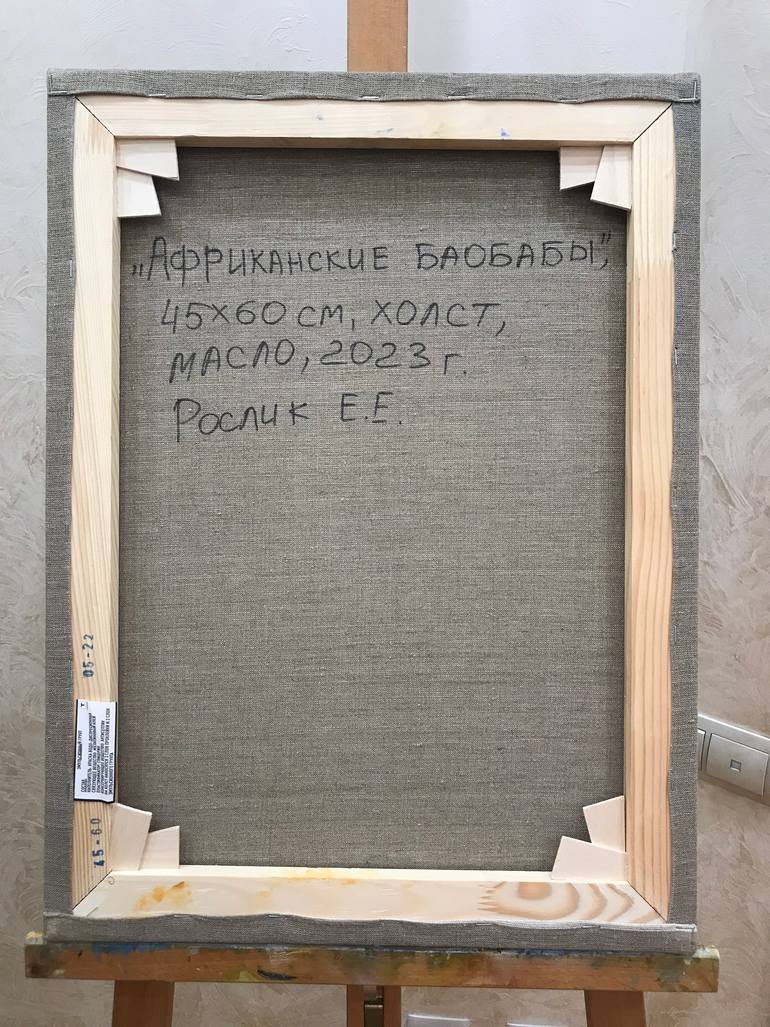 „Африканские баобабы",
45×60 см, холст,
масло, 2023 г.
Рослик Е.Е.
05-22
45-60